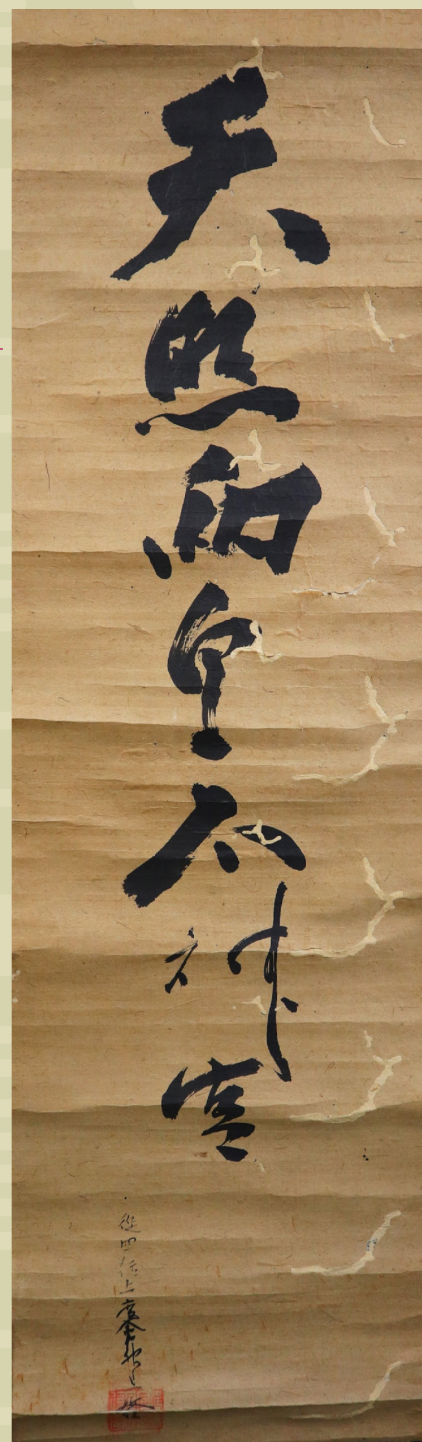 天照両皇太神宮
従四位上